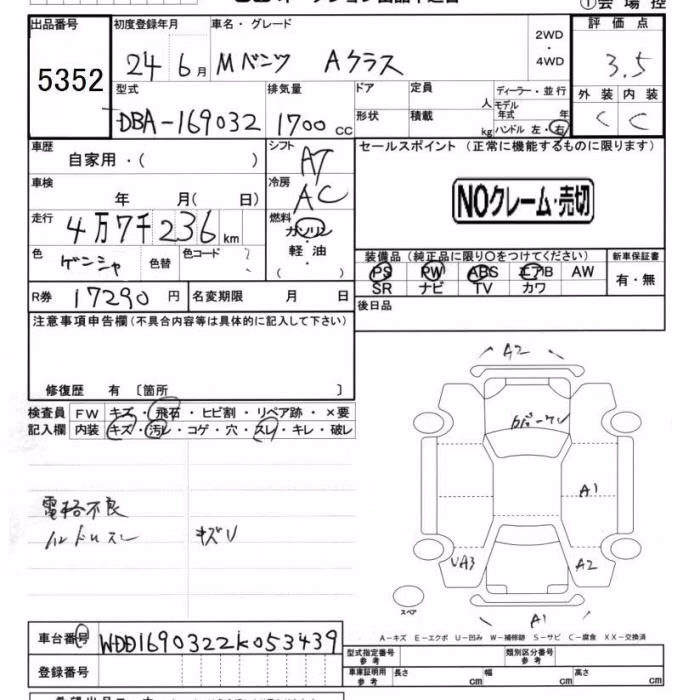 ①会場控
出品番号 5352
初度登録年月 24 6月
車名・グレード Mベンツ Aクラス
2WD・4WD
評価点 3.5
型式 DBA-169032
排気量 1700 CC
ドア 形状
定員 人
積載 kg
ディーラー・並行
モデル年式 年
ハンドル 左・右
外装 内装
C C
車歴 自家用・( )
シフト AT
セールスポイント (正常に機能するものに限ります)
NOクレーム・売切
車検 年 月( 日)
冷房 AC
走行 4万7千236km
燃料 ガソリン
軽・油
( )
色 ゲンシャ 色替 色コード ?
装備品 (純正品に限り○をつけてください) 新車保証書
PS PW ABS エアB AW 有・無
SR ナビ TV カワ
R券 17290円 名変期限 月 日
後日品
注意事項申告欄 (不具合内容等は具体的に記入して下さい)
修復歴 有 〔箇所 〕
検査員 FW キズ・飛石・ヒビ割・リペア跡・×要
記入欄 内装 キズ・汚レ・コゲ・穴・スレ・キレ・破レ
A2
A1
UA3 A2
A1
電格不良
ハンドルスレ キズU
スペア
A-キズ E-エクボ U-凹み W-補修跡 S-サビ C-腐食 XX-交換済
車台番号 WDD1690322K053439
登録番号
型式指定番号 参考 類別区分番号 参考
車庫証明用 参考 長さ cm 幅 cm 高さ cm